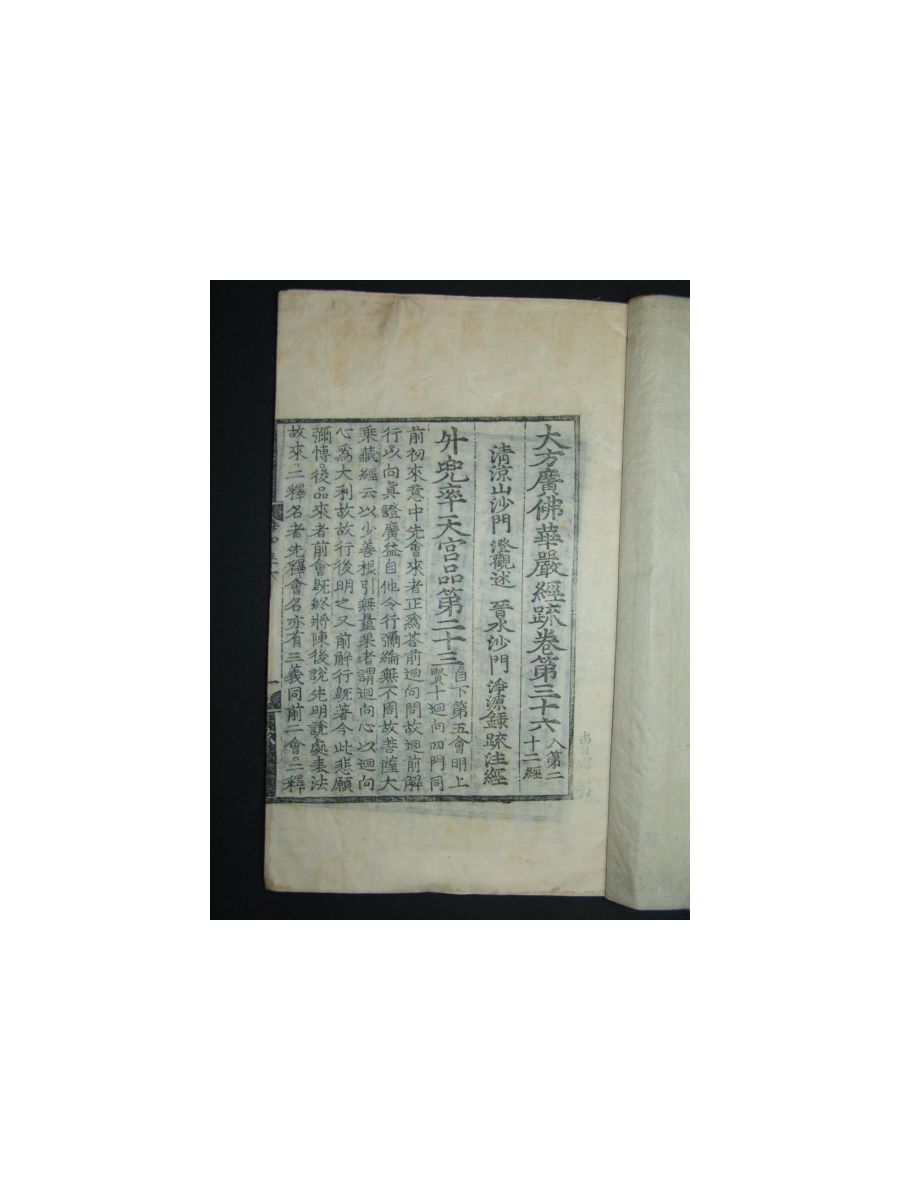 大方廣佛華嚴經䟽卷第三十六 入第二十二經
清涼山沙門 澄觀述 晉水沙門 淨源錄䟽注經
升兜率天宮品第二十三 自下第五會明上賢十迴向四門同
前初來意中先會來者正爲荅前迴向問故迴前解
行以向眞證廣益自他令行彌綸無不周故菩薩大
乘藏經云以少善根引無量果者謂迴向心以迴向
心爲大利故故行後明之又前解行旣著今此悲願
彌博後品來者前會旣終將陳後說先明說處表法
故來二釋名者先釋會名亦有三義同前二會二釋